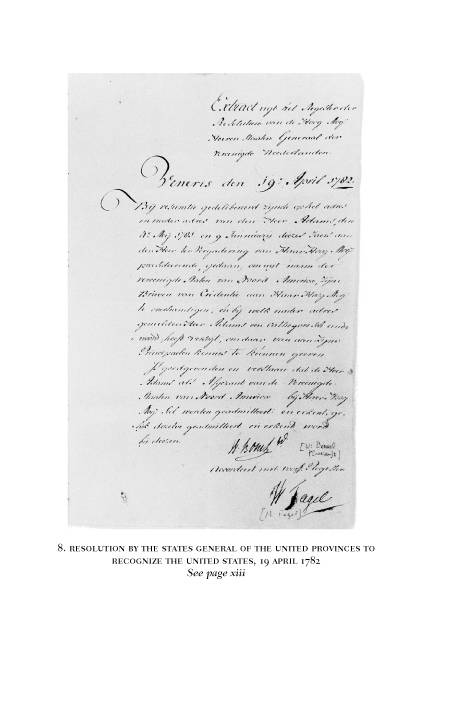 Extract uyt het Register der
Resolutien van de Hoog Mog
Heeren Staaten Generaal der
vereenigde Nederlanden.
Veneris den 19: April 1782.
Bij resumtie gedelibereerd zijnde op het adres
en nader adres van den Heer Adams, den
4e Meij 1781 en 9 January deezes Jaars aan
den Heer ter Vergadering van Haar Hoog Mog
præsideerende, gedaan, om uyt naam der
vereenigde Staten van Noord America, zijne
Brieven van Credentie aan Haar Hoog Mog
te overhandigen, en bij welk nader adres
gemelden Heer Adams een cathegorisch ant-
woord heeft verzogt, om daar van aan zijne
Principaalen kennis te kunnen geeven.
Is goedgevonden en verstaan dat de Heer
Adams als Afgezant van de Vereenigde
Staaten van Noord America bij Haar Hoog
Mog. sal worden geadmitteert en erkent, ge-
lijk dezelve geadmitteert en erkend word
bij deezen.
[W: Boreel
Accordeert met voorsz. Register
H Fagel
[H. Fagel]
8. RESOLUTION BY THE STATES GENERAL OF THE UNITED PROVINCES TO
RECOGNIZE THE UNITED STATES, 19 APRIL 1782
See page xiii